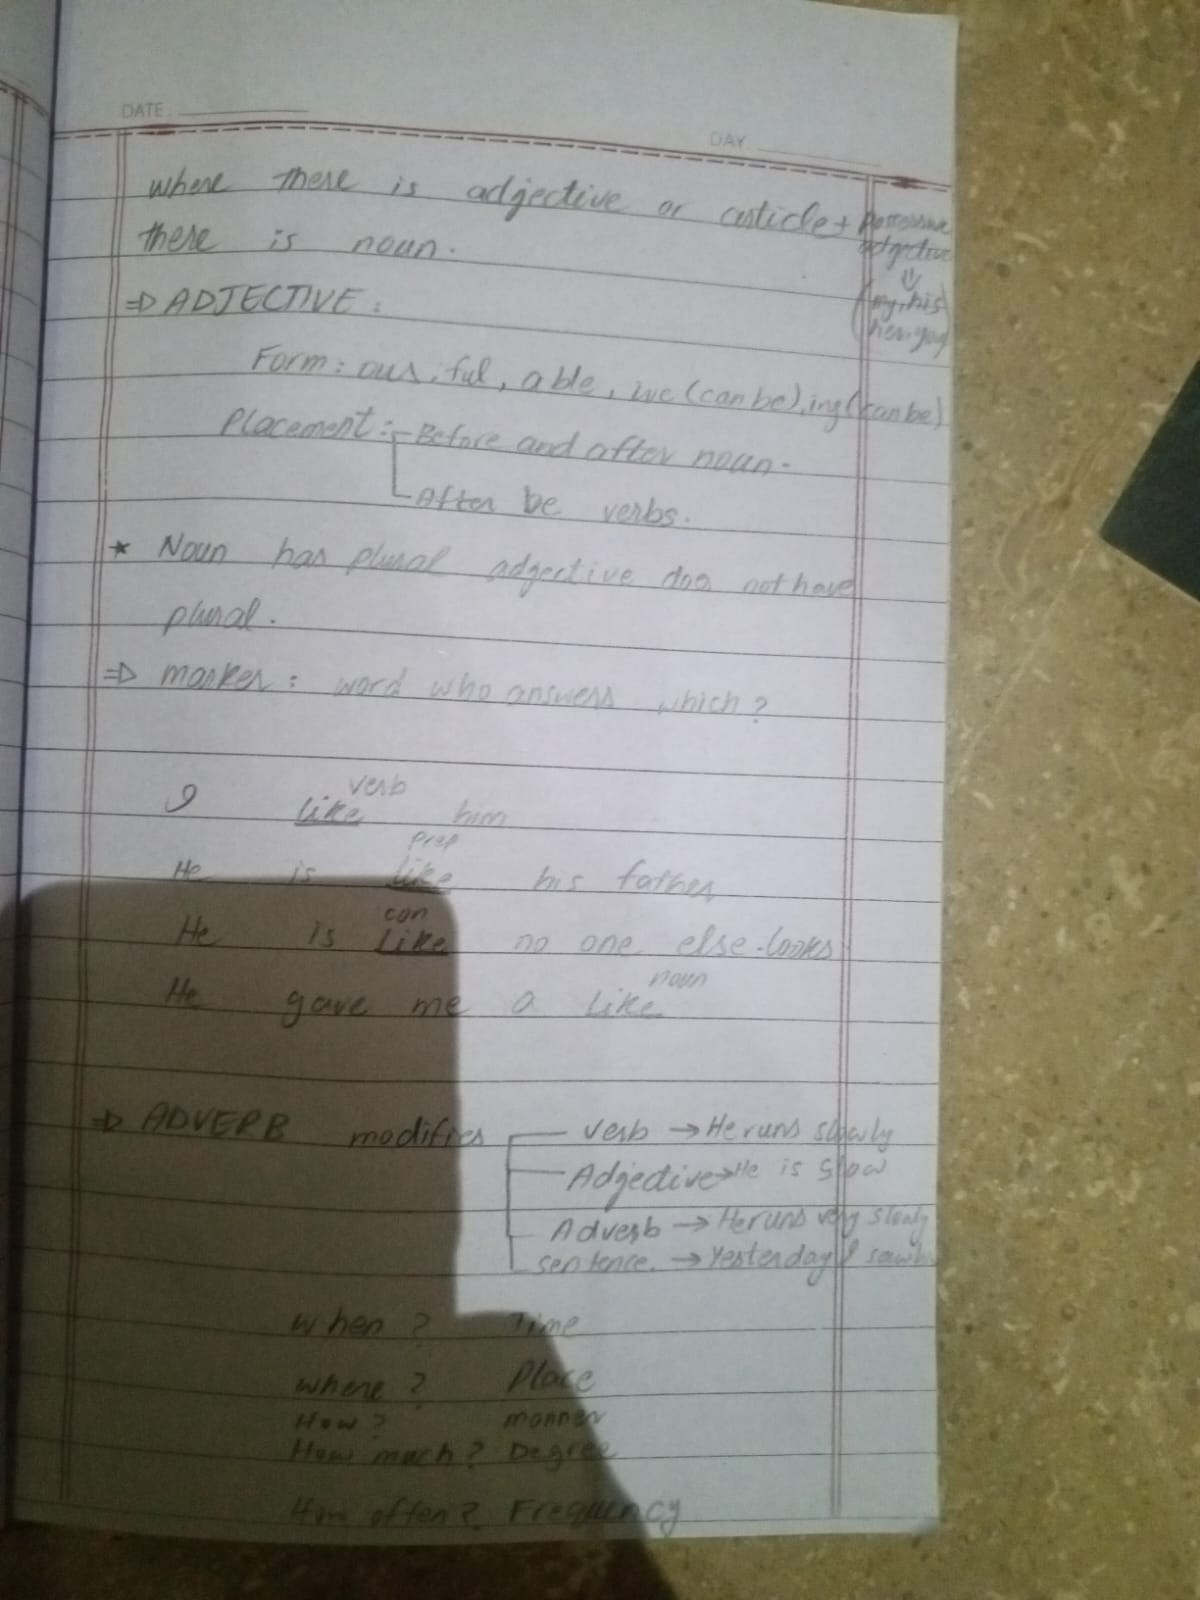 DATE
DAY
where there is adjective or article + possessive
adjective
there is noun.
(my, his
her, your
⇒ ADJECTIVE:
Form: ous, ful, able, ive (can be), ing (can be)
Placement: Before and after noun.
After be verbs.
* Noun has plural adjective does not have
plural.
⇒ marker: word who answers which?
verb
I like him
prep
He is like his father
con
He is like no one else looks
noun
He gave me a like
⇒ ADVERB modifies verb → He runs slowly
Adjective → He is slow
Adverb → He runs very slowly
sentence. → Yesterday I saw
When? Time
where? Place
How? manner
How much? Degree
How often? Frequency